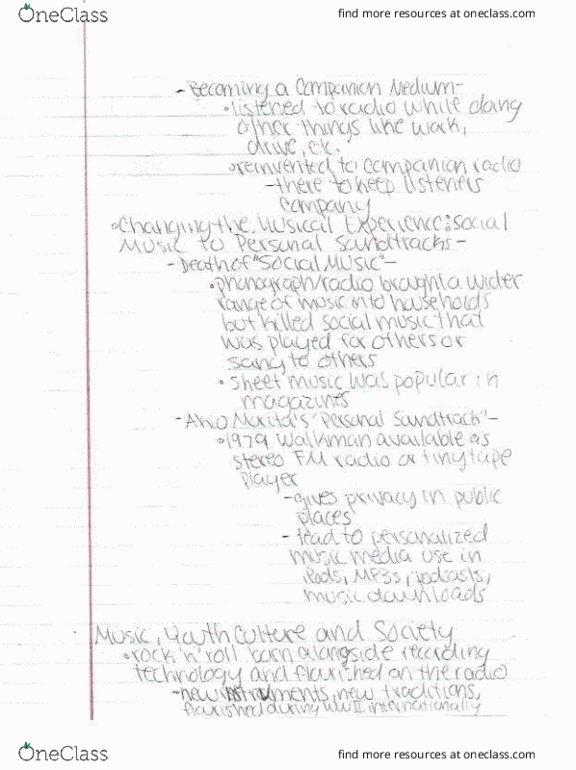 OneClass
find more resources at oneclass.com
- Becoming a Companion Medium-
• listened to radio while doing
other things like work,
drive, etc.
• reinvented to companion radio
- there to keep listeners
company
• Changing the Musical Experience: Social
Music to Personal Soundtracks -
- Death of "Social Music" -
• phonograph/radio brought a wider
range of music into households
but killed social music that
was played for others or
sang to others
• sheet music was popular in
magazines
- Akio Morita's "Personal Soundtrack" -
• 1979 Walkman available as
stereo FM radio or tiny tape
player
- gives privacy in public
places
- lead to personalized
music media use in
iPods, MP3s, podcasts,
music downloads
Music, Youth Culture and Society
• rock 'n' roll born alongside recording
technology and flourished on the radio
- new instruments, new traditions,
flourished during WWII internationally
OneClass
find more resources at oneclass.com